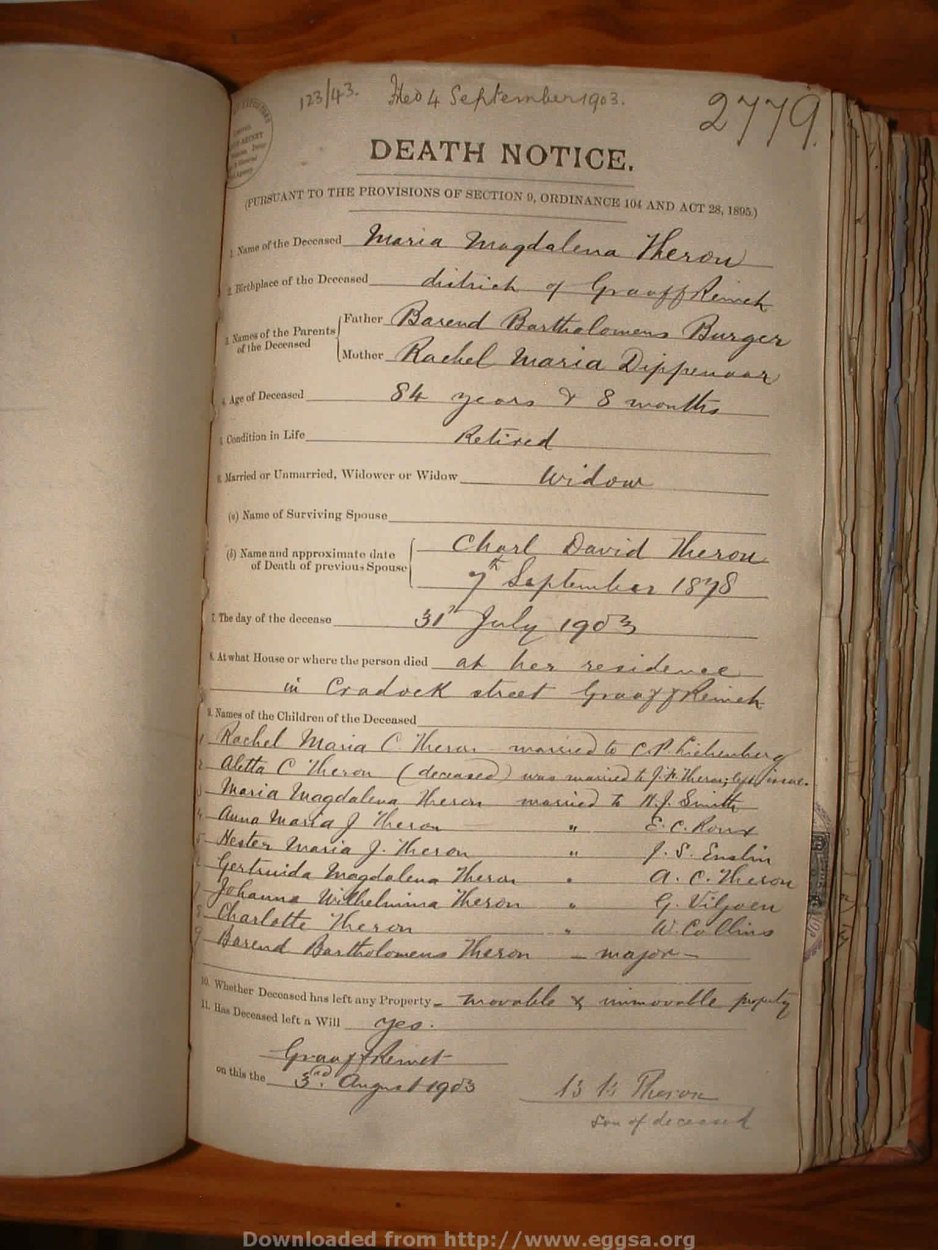 123/43. Filed 4 September 1903. 2779.
DEATH NOTICE.
(PURSUANT TO THE PROVISIONS OF SECTION 9, ORDINANCE 104 AND ACT 28, 1895.)
1. Name of the Deceased Maria Magdalena Theron
2. Birthplace of the Deceased district of Graaff Reinet
3. Names of the Parents of the Deceased Father Barend Bartholomeus Burger
Mother Rachel Maria Dippenaar
4. Age of Deceased 84 years & 8 months
5. Condition in Life Retired
6. Married or Unmarried, Widower or Widow Widow
(a) Name of Surviving Spouse
(b) Name and approximate date of Death of previous Spouse Charl David Theron
7th September 1878
7. The day of the decease 31st July 1903
8. At what House or where the person died at her residence
in Cradock street Graaff Reinet
9. Names of the Children of the Deceased
1 Rachel Maria C Theron married to C.P. Liebenberg
2 Aletta C Theron (deceased) was married to J.F. Theron; left issue.
3 Maria Magdalena Theron married to N.J. Smith
4 Anna Maria J Theron " E.C. Roux
5 Hester Maria J. Theron " J.S. Enslin
6 Gertruida Magdalena Theron " A.C. Theron
7 Johanna Wilhelmina Theron " G. Viljoen
8 Charlotte Theron " W. Collins
9 Barend Bartholomeus Theron - major -
10. Whether Deceased has left any Property - movable & immovable property
11. Has Deceased left a Will yes.
Graaff Reinet
on this the 3rd August 1903 B B Theron
Son of deceased
Downloaded from http://www.eggsa.org